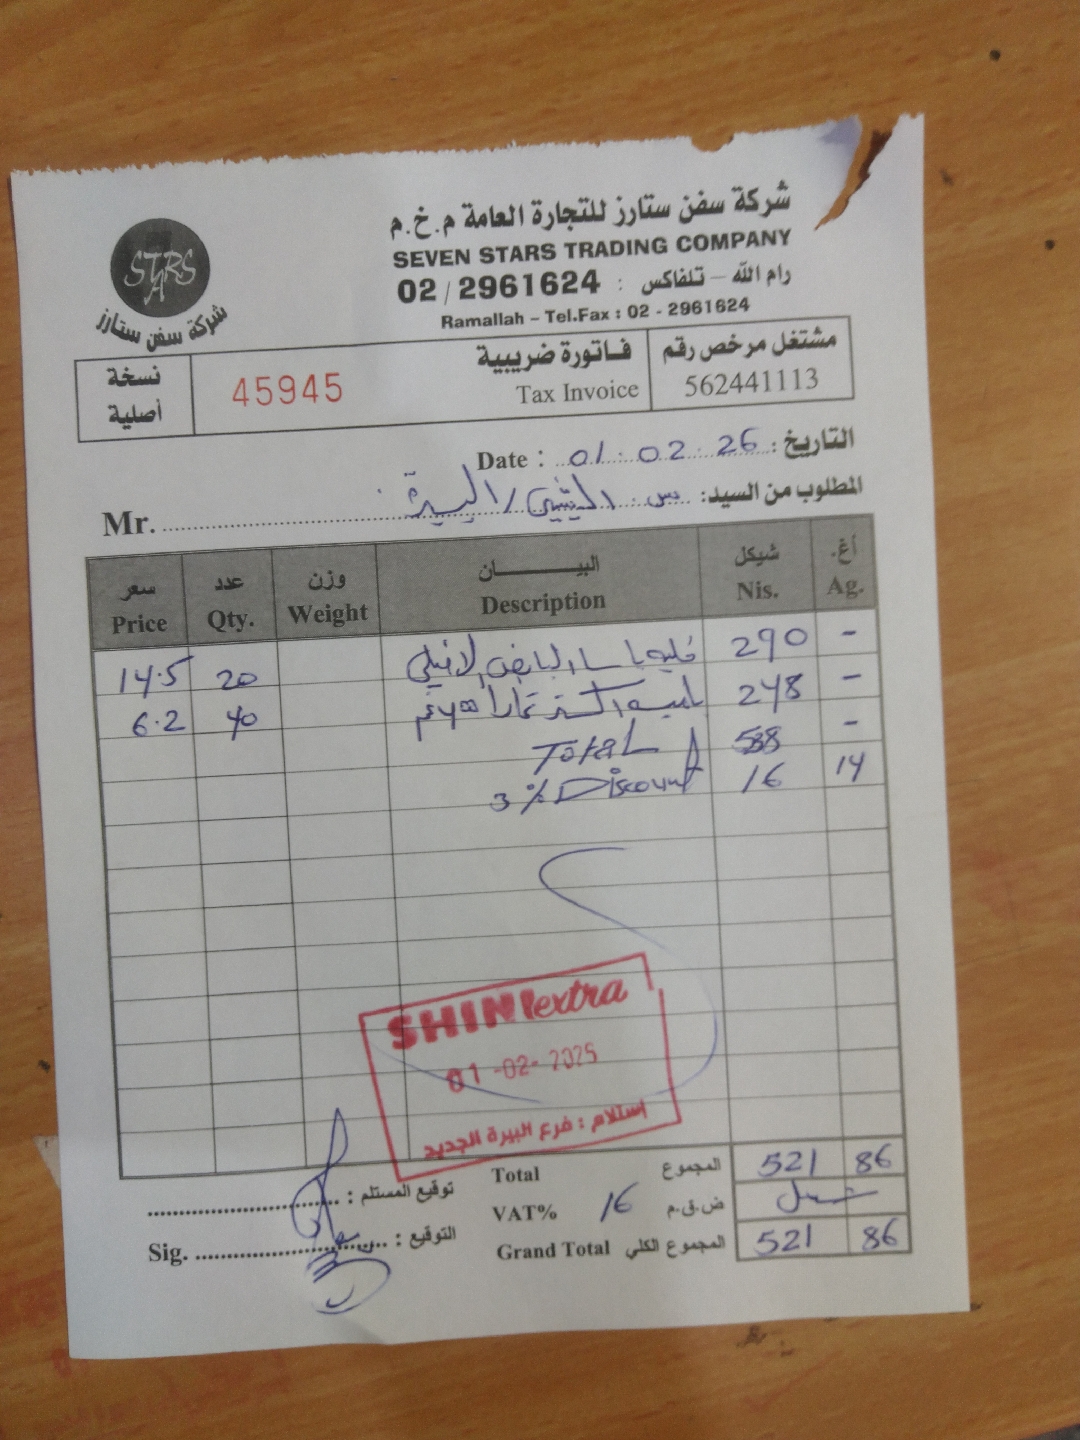 شركة سفن ستارز للتجارة العامة م.خ.م
SEVEN STARS TRADING COMPANY
رام الله - تلفاكس : 02/2961624
Ramallah - Tel.Fax : 02 - 2961624
STARS
شركة سفن ستارز
مشتغل مرخص رقم
562441113
فاتورة ضريبية
Tax Invoice
45945
نسخة
أصلية
التاريخ : Date : 01.02.26
المطلوب من السيد: Mr.
سعر عدد وزن البيـــان شيكل أغ.
Price Qty. Weight Description Nis. Ag.
14.5 20 290 -
6.2 40 248 -
Total 538 -
3% Discount 16 14
SHINI extra
01-02-2025
استلام : فرع البيرة الجديد
Total المجموع 521 86
توقيع المستلم :
VAT% 16 ض.ق.م
Grand Total المجموع الكلي 521 86
Sig. التوقيع :